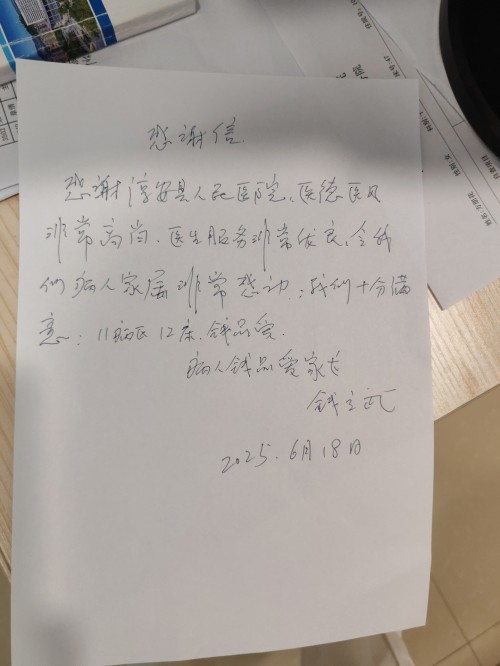 感谢信
感谢淳安县人民医院、医德医风
非常高尚、医生服务非常优良、令我
们病人家属非常感动；我们十分满
意：11病区12床、钱品爱、
病人钱品爱家长
钱立
2025.6月18日